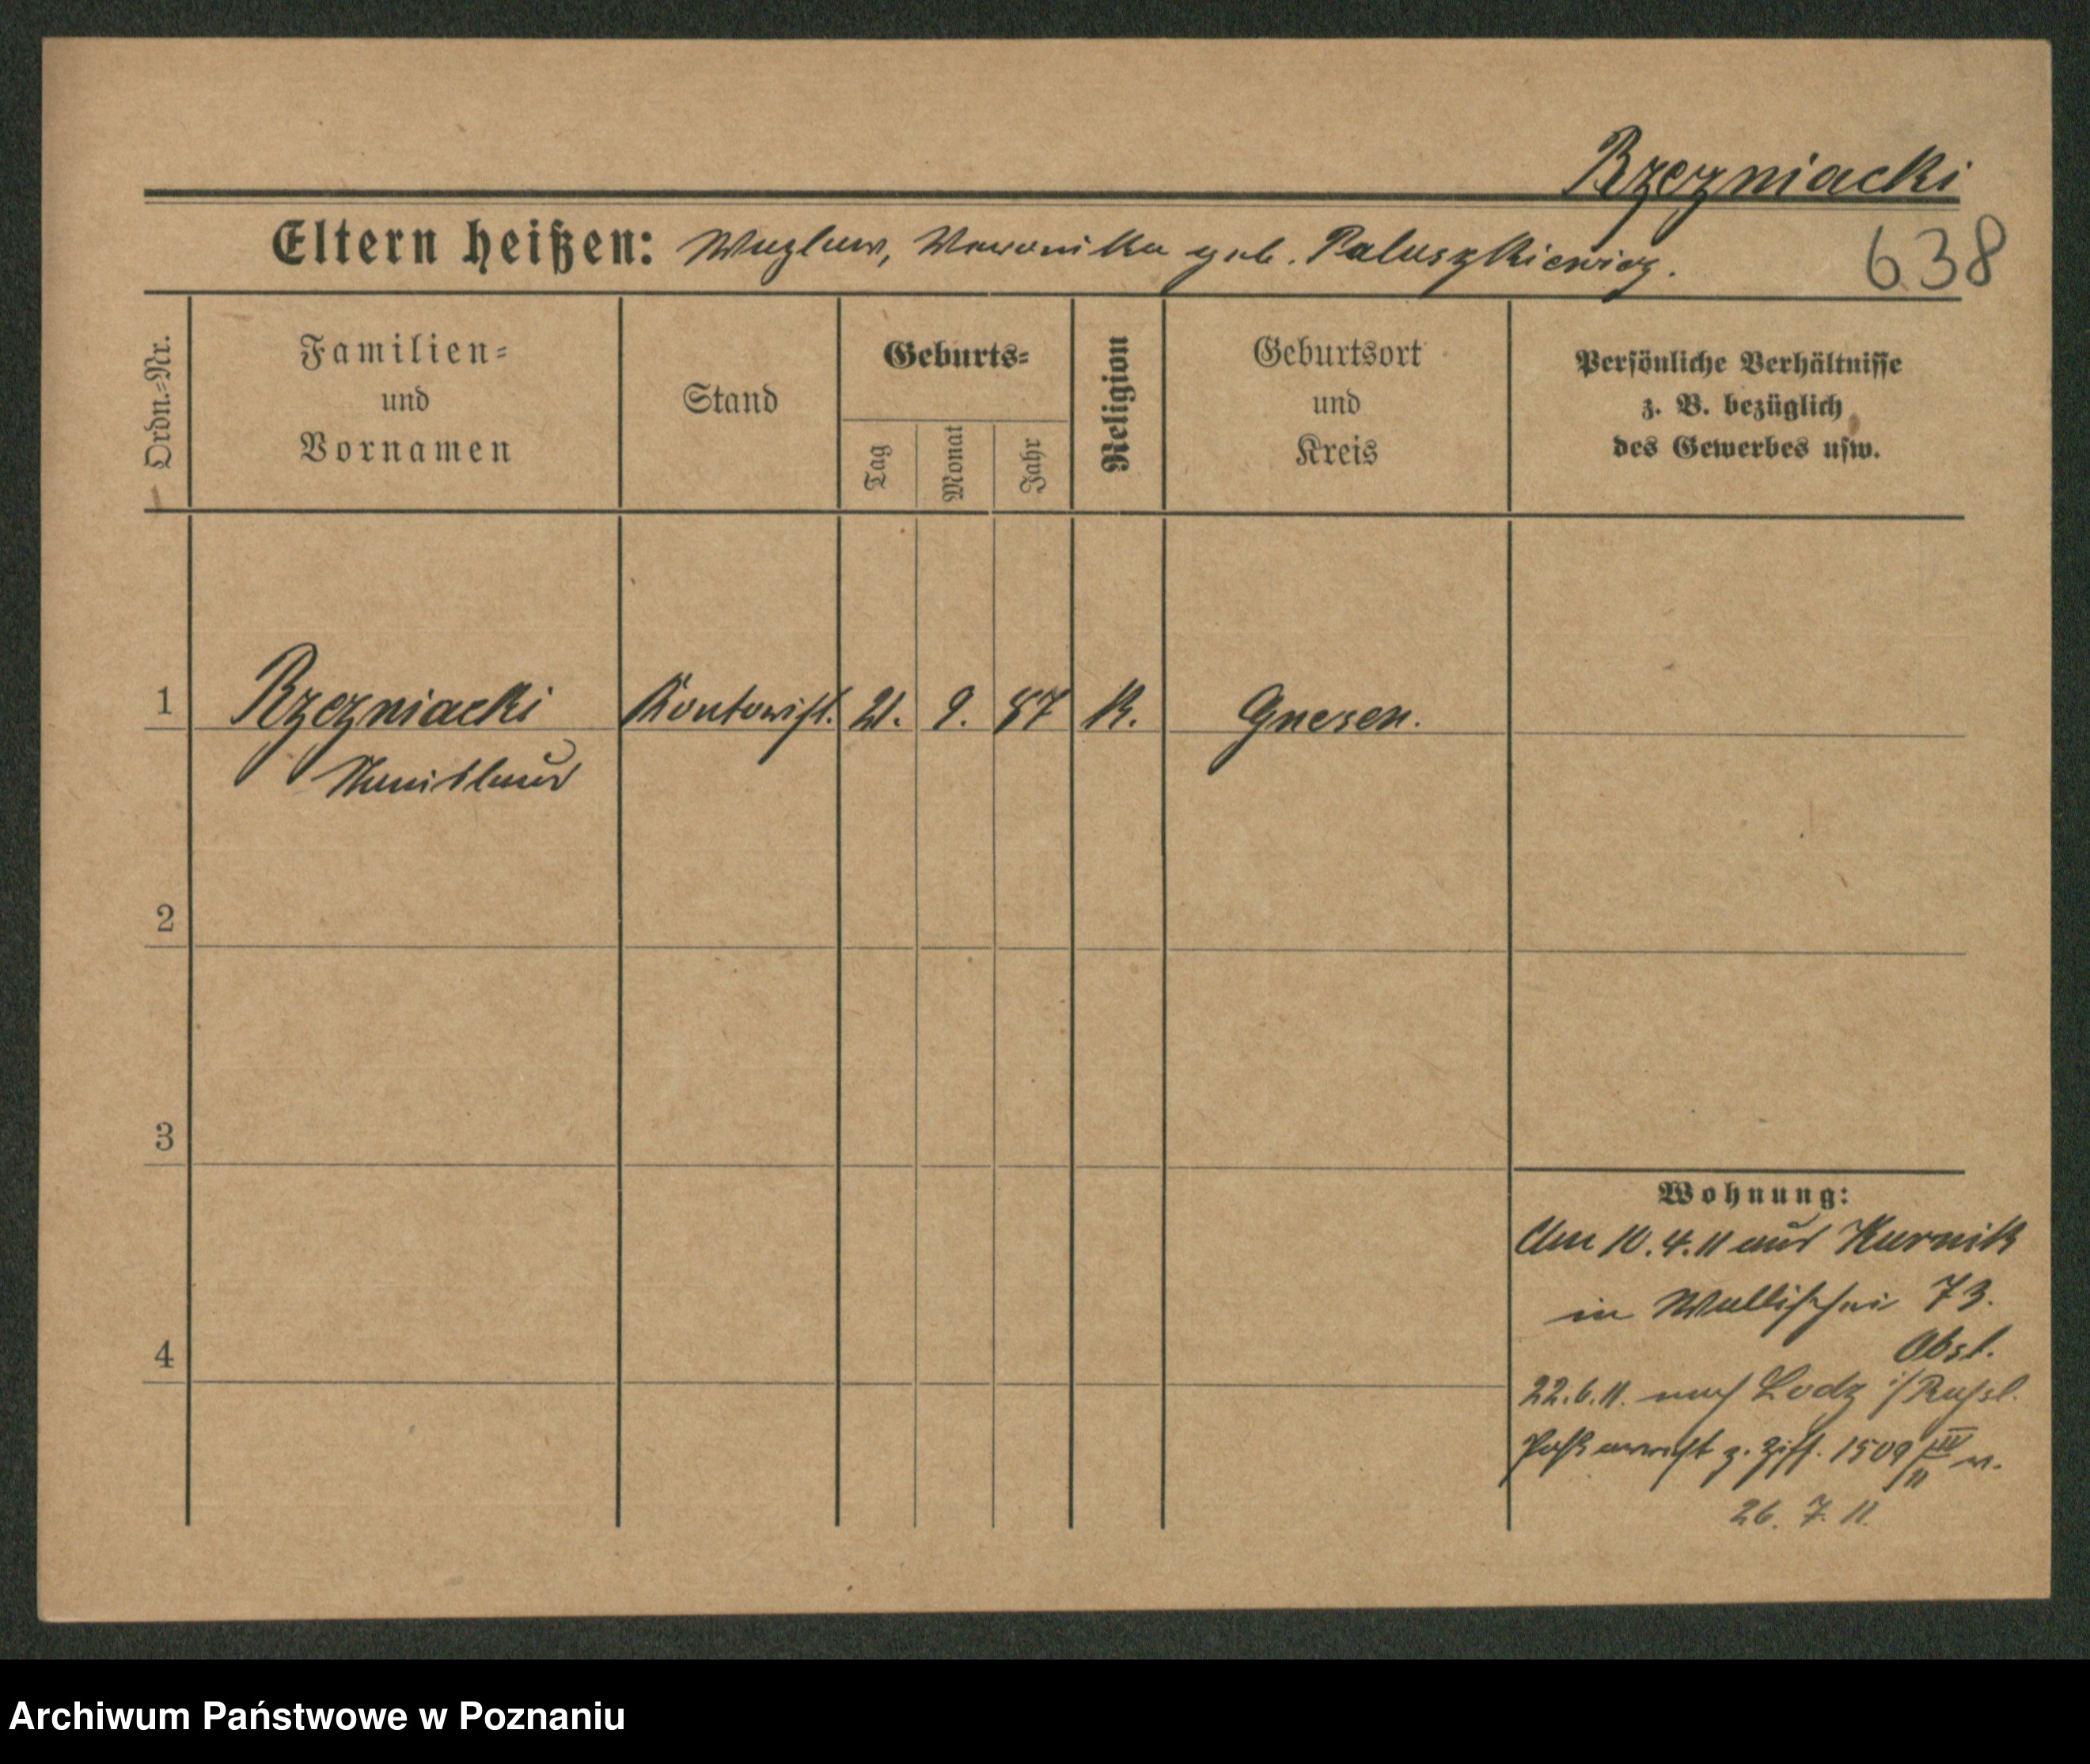 Rzezniacki
Eltern heißen: Wazlaw, Veronika geb. Paluszkiewicz.
638
Ordn.-Nr.
Familien-
und
Vornamen
Stand
Geburts-
Tag
Monat
Jahr
Religion
Geburtsort
und
Kreis
Persönliche Verhältnisse
z. B. bezüglich
des Gewerbes usw.
1 Rzezniacki Kontorist. 21. 9. 87 K. Gnesen.
Stanislaus
2
3
4
Wohnung:
Am 10.4.11 aus Kurnik
in Wallischei 73.
Obst.
22.6.11. nach Lodz i/Russl.
z. Ziff. 1509 IV/11
26. 7. 11.
Archiwum Państwowe w Poznaniu